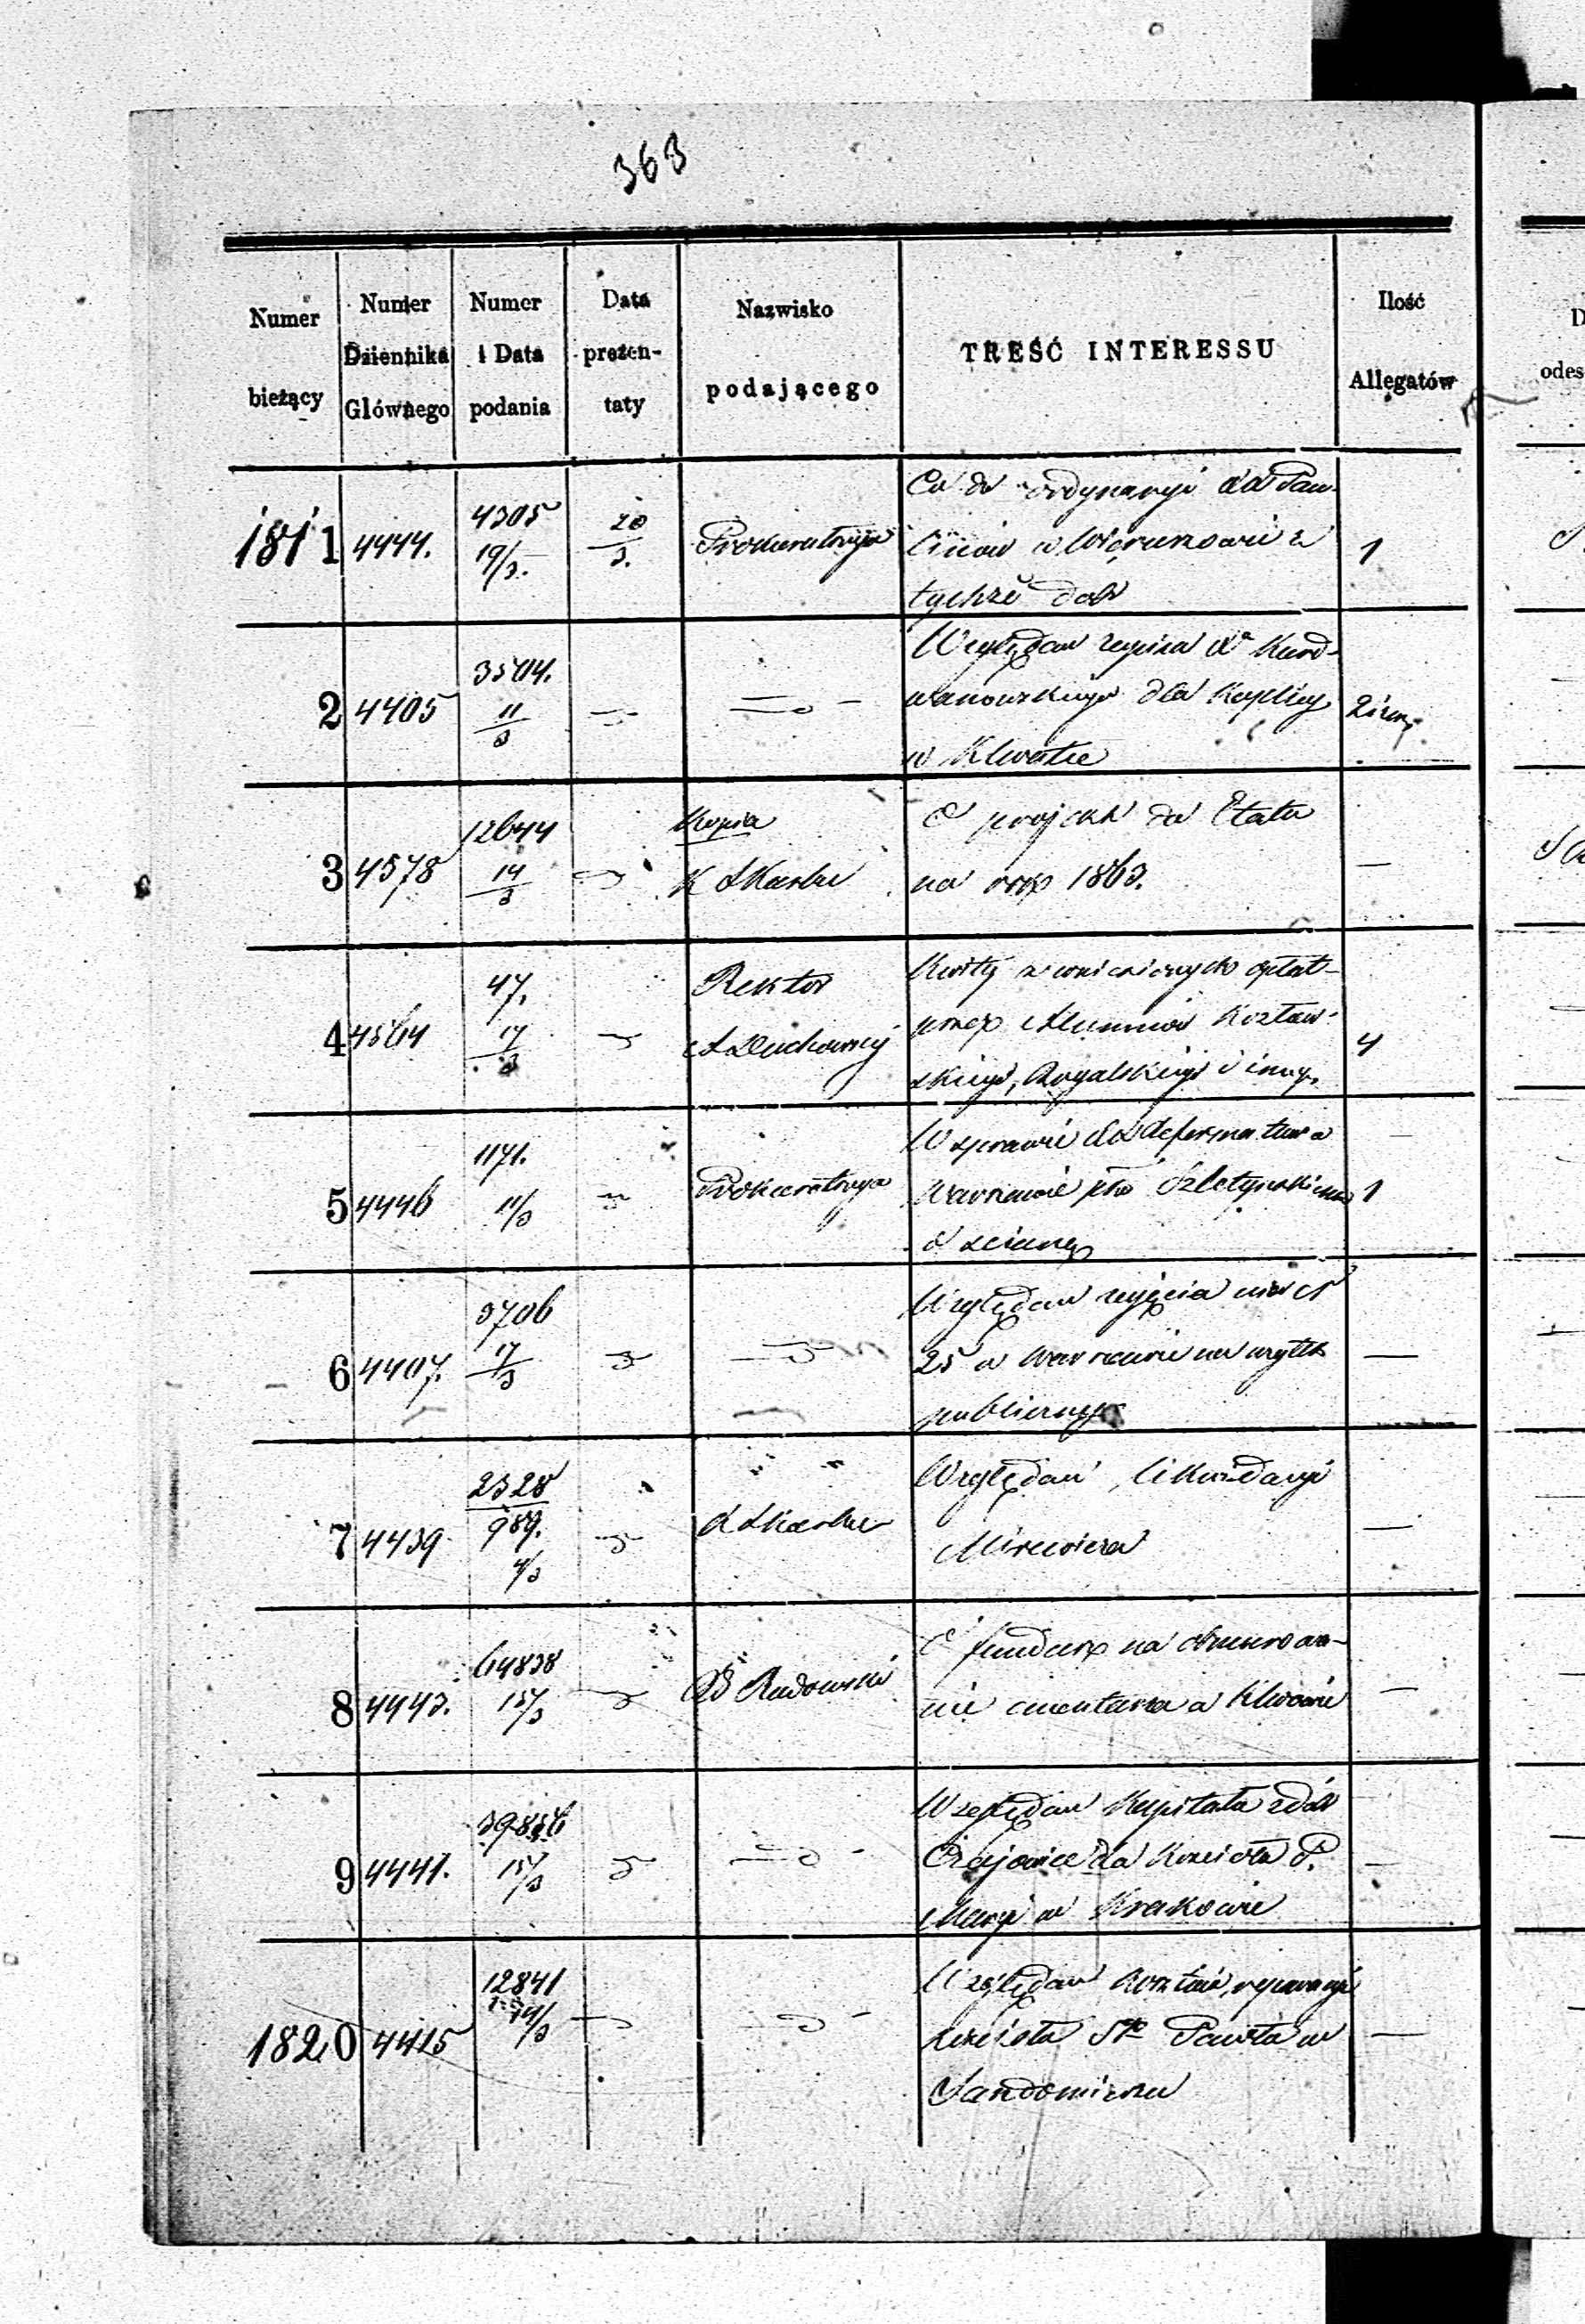 363
Numer bieżący
Numer Dziennika Głównego
Numer i Data podania
Data prezentaty
Nazwisko podającego
TREŚĆ INTERESSU
Ilość Allegatów
D
odes
1811 4444. 4305 19/3. 20/3. Prokuratorya 1
Co do ordynaryi dd Pau-
linów w Wieruszowie z
tychże dóbr
2 4405 3504. 11/3
Względem zapisu
wanowskiego dla Kaplicy
w Klwatce
3 4578 12644 14/3 Kopia K S Karbu —
O projekt do Etatu
na rok 1863.
4 4564 47. 17/3 Rektor A Duchownej 4
Kwity z wniesionych opłat
przez Alumnów
skiego, Rogalskiego i innych
5 4446 1171. 11/3 Prokuratorya 1
W sprawie dd Reformatów w
Warszawie
o ścianę
6 4407. 3706 17/3 —
Względem zajęcia
25 w Warszawie na użytek
publiczny
7 4439 2328 989. 4/3 K Skarbu —
Względem likwidacyi
8 4443. 64838 15/3 RG Radomski —
O fundusz na obmurowa-
nie cmentarza w Klwowie
9 4441. 15/3 —
Względem Kapitału z dóbr
dla Kościoła P.
Maryi w Krakowie
1820 4415 12841 14/3 —
Względem kosztów reparacyi
kościoła Sgo Pawła w
Sandomierzu